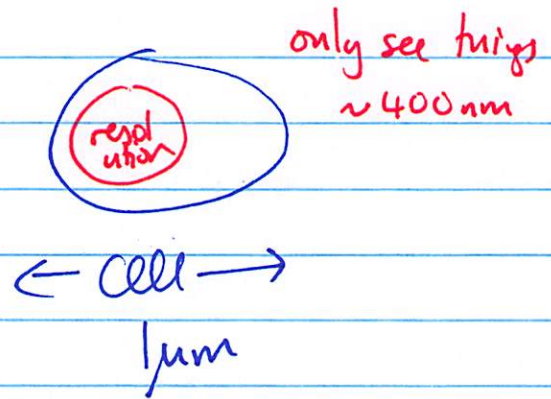 only see things
~400nm
resol
ution
← Cell →
1µm